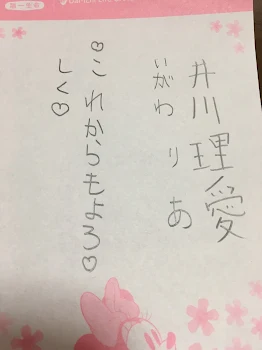 井川理愛
いがわ りあ
♡これからもよろ♡
しく♡